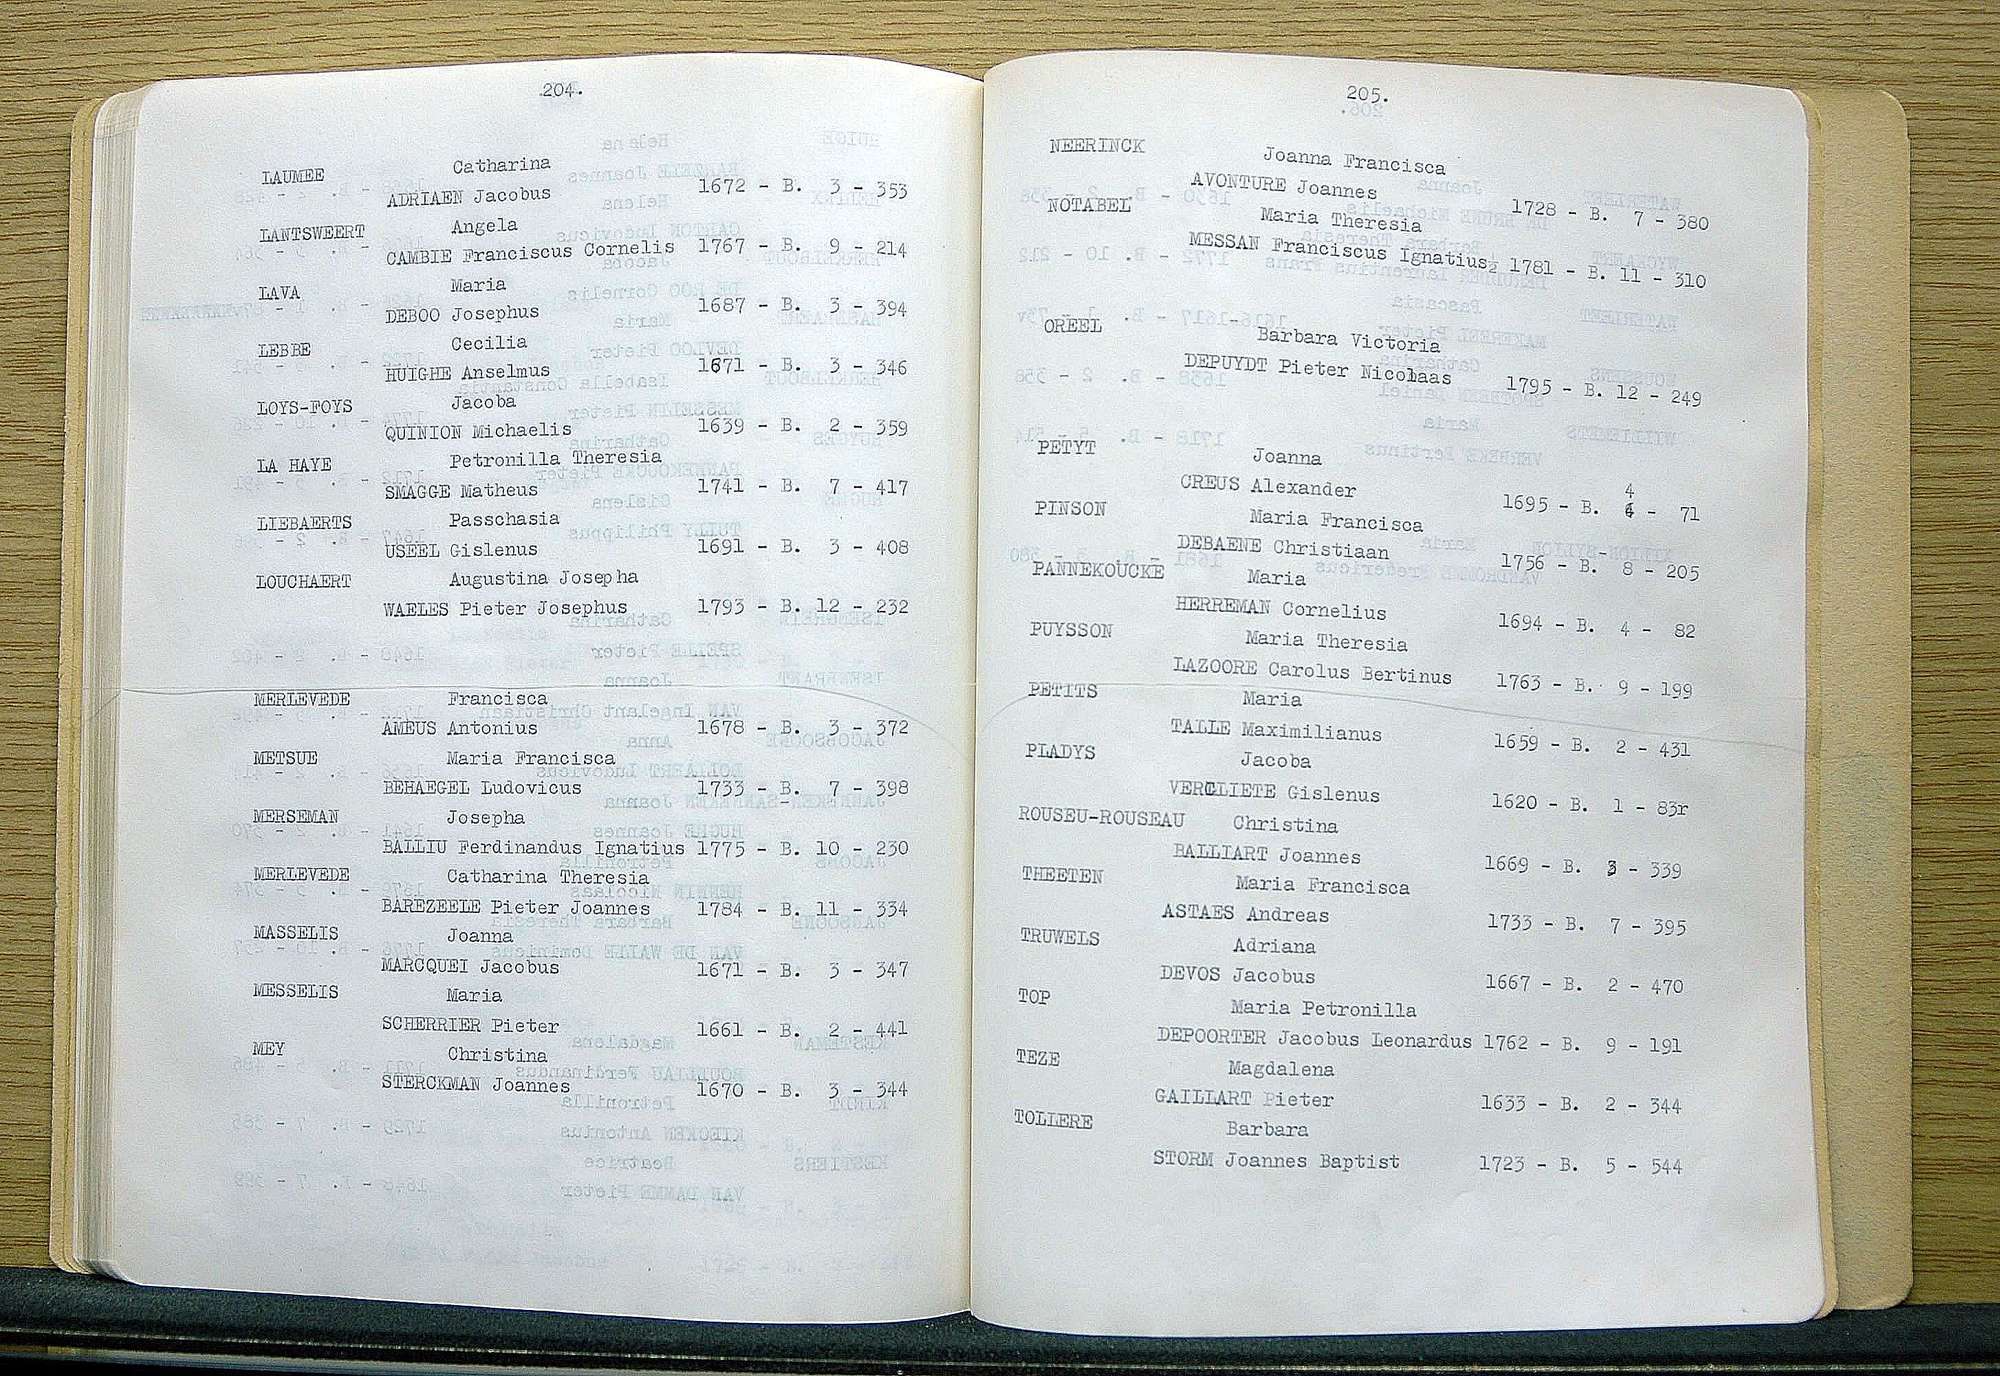 204.
LAUMEE Catharina
ADRIAEN Jacobus 1672 - B. 3 - 353
LANTSWEERT Angela
CAMBIE Franciscus Cornelis 1767 - B. 9 - 214
LAVA Maria
DEBOO Josephus 1687 - B. 3 - 394
LEBBE Cecilia
HUIGHE Anselmus 1671 - B. 3 - 346
LOYS-FOYS Jacoba
QUINION Michaelis 1639 - B. 2 - 359
LA HAYE Petronilla Theresia
SMAGGE Matheus 1741 - B. 7 - 417
LIEBAERTS Passchasia
USEEL Gislenus 1691 - B. 3 - 408
LOUCHAERT Augustina Josepha
WAELES Pieter Josephus 1793 - B. 12 - 232
MERLEVEDE Francisca
AMEUS Antonius 1678 - B. 3 - 372
METSUE Maria Francisca
BEHAEGEL Ludovicus 1733 - B. 7 - 398
MERSEMAN Josepha
BALLIU Ferdinandus Ignatius 1775 - B. 10 - 230
MERLEVEDE Catharina Theresia
BAREZEELE Pieter Joannes 1784 - B. 11 - 334
MASSELIS Joanna
MARCQUEI Jacobus 1671 - B. 3 - 347
MESSELIS Maria
SCHERRIER Pieter 1661 - B. 2 - 441
MEY Christina
STERCKMAN Joannes 1670 - B. 3 - 344
205.
NEERINCK Joanna Francisca
AVONTURE Joannes 1728 - B. 7 - 380
NOTABEL Maria Theresia
MESSAN Franciscus Ignatius 1781 - B. 11 - 310
OREEL Barbara Victoria
DEPUYDT Pieter Nicolaas 1795 - B. 12 - 249
PETYT Joanna
CREUS Alexander 1695 - B. 4 - 71
PINSON Maria Francisca
DEBAENE Christiaan 1756 - B. 8 - 205
PANNEKOUCKE Maria
HERREMAN Cornelius 1694 - B. 4 - 82
PUYSSON Maria Theresia
LAZOORE Carolus Bertinus 1763 - B. 9 - 199
PETITS Maria
TALLE Maximilianus 1659 - B. 2 - 431
PLADYS Jacoba
Gislenus 1620 - B. 1 - 83r
ROUSEU-ROUSEAU Christina
BALLIART Joannes 1669 - B. 3 - 339
THEETEN Maria Francisca
ASTAES Andreas 1733 - B. 7 - 395
TRUWELS Adriana
DEVOS Jacobus 1667 - B. 2 - 470
TOP Maria Petronilla
DEPOORTER Jacobus Leonardus 1762 - B. 9 - 191
TEZE Magdalena
GAILLART Pieter 1633 - B. 2 - 344
TOLLERE Barbara
STORM Joannes Baptist 1723 - B. 5 - 544